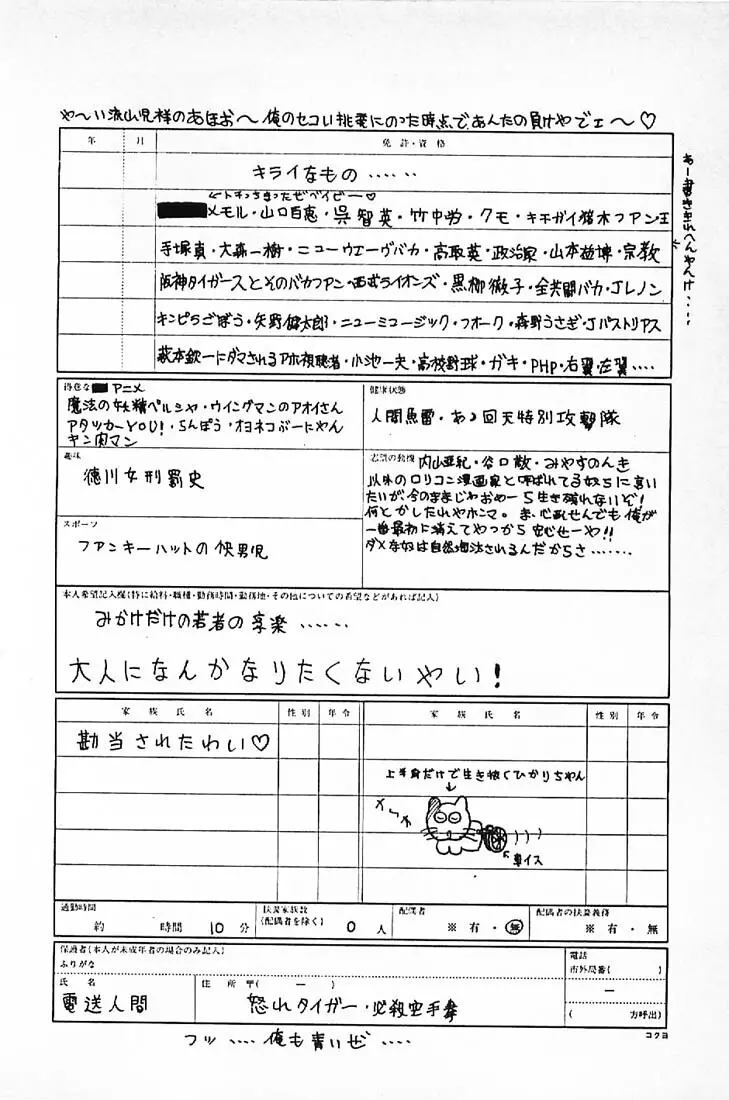 や〜い流山児様のあほお〜俺のセコい挑発にのった時点で、あんたの負けやでェ〜♡
年 月 免許・資格
キライなもの‥‥‥
メモル・山口百恵・呉智英・竹中労・クモ・キチガイ猪木ファン王
手塚真・大森一樹・ニューウエーヴバカ・高取英・政治家・山本益博・宗教
阪神タイガースとそのバカファン・西武ライオンズ・黒柳徹子・全共闘バカ・Jレノン
キンピラごぼう・矢野健太郎・ニューミュージック・フオーク・森野うさぎ・Jパストリアス
萩本欽一にダマされるアホ視聴者・小池一夫・高校野球・ガキ・PHP・右翼・左翼‥‥
あー書ききれへんやんけ‥‥
得意な アニメ
魔法の妖精ペルシャ・ウイングマンのアオイさん
アタッカーYOU!・らんぽう・オヨネコぶーにゃん
キン肉マン
健康状態
人間魚雷・あゝ回天特別攻撃隊
趣味
徳川女刑罰史
志望の動機 内山亜紀・谷口敬・みやすのんき
以外のロリコン漫画家と呼ばれてる奴らに言い
たいが今のままじゃおめーら生き残れないぞ!
何とかしたれやホンマ。ま、心配せんでも俺が
一番最初に消えてやっから安心せーや!!
ダメな奴は自然淘汰されるんだからさ‥‥‥
スポーツ
ファンキーハットの快男児
本人希望記入欄(特に給料・職種・勤務時間・勤務地・その他についての希望などがあれば記入)
みかけだけの若者の享楽‥‥‥
大人になんかなりたくないやい!
家族氏名 性別 年令 家族氏名 性別 年令
勘当されたわい♡
上半身だけで生き抜くひかりちゃん
車イス
通勤時間
約 時間 10分
扶養家族数
(配偶者を除く) 0人
配偶者
※有・無
配偶者の扶養義務
※有・無
保護者(本人が未成年者の場合のみ記入)
ふりがな
氏名
電送人間
住所〒( ー )
怒れタイガー・必殺空手拳
電話
市外局番( )
ー
( 方呼出)
コクヨ
フッ‥‥俺も青いぜ‥‥